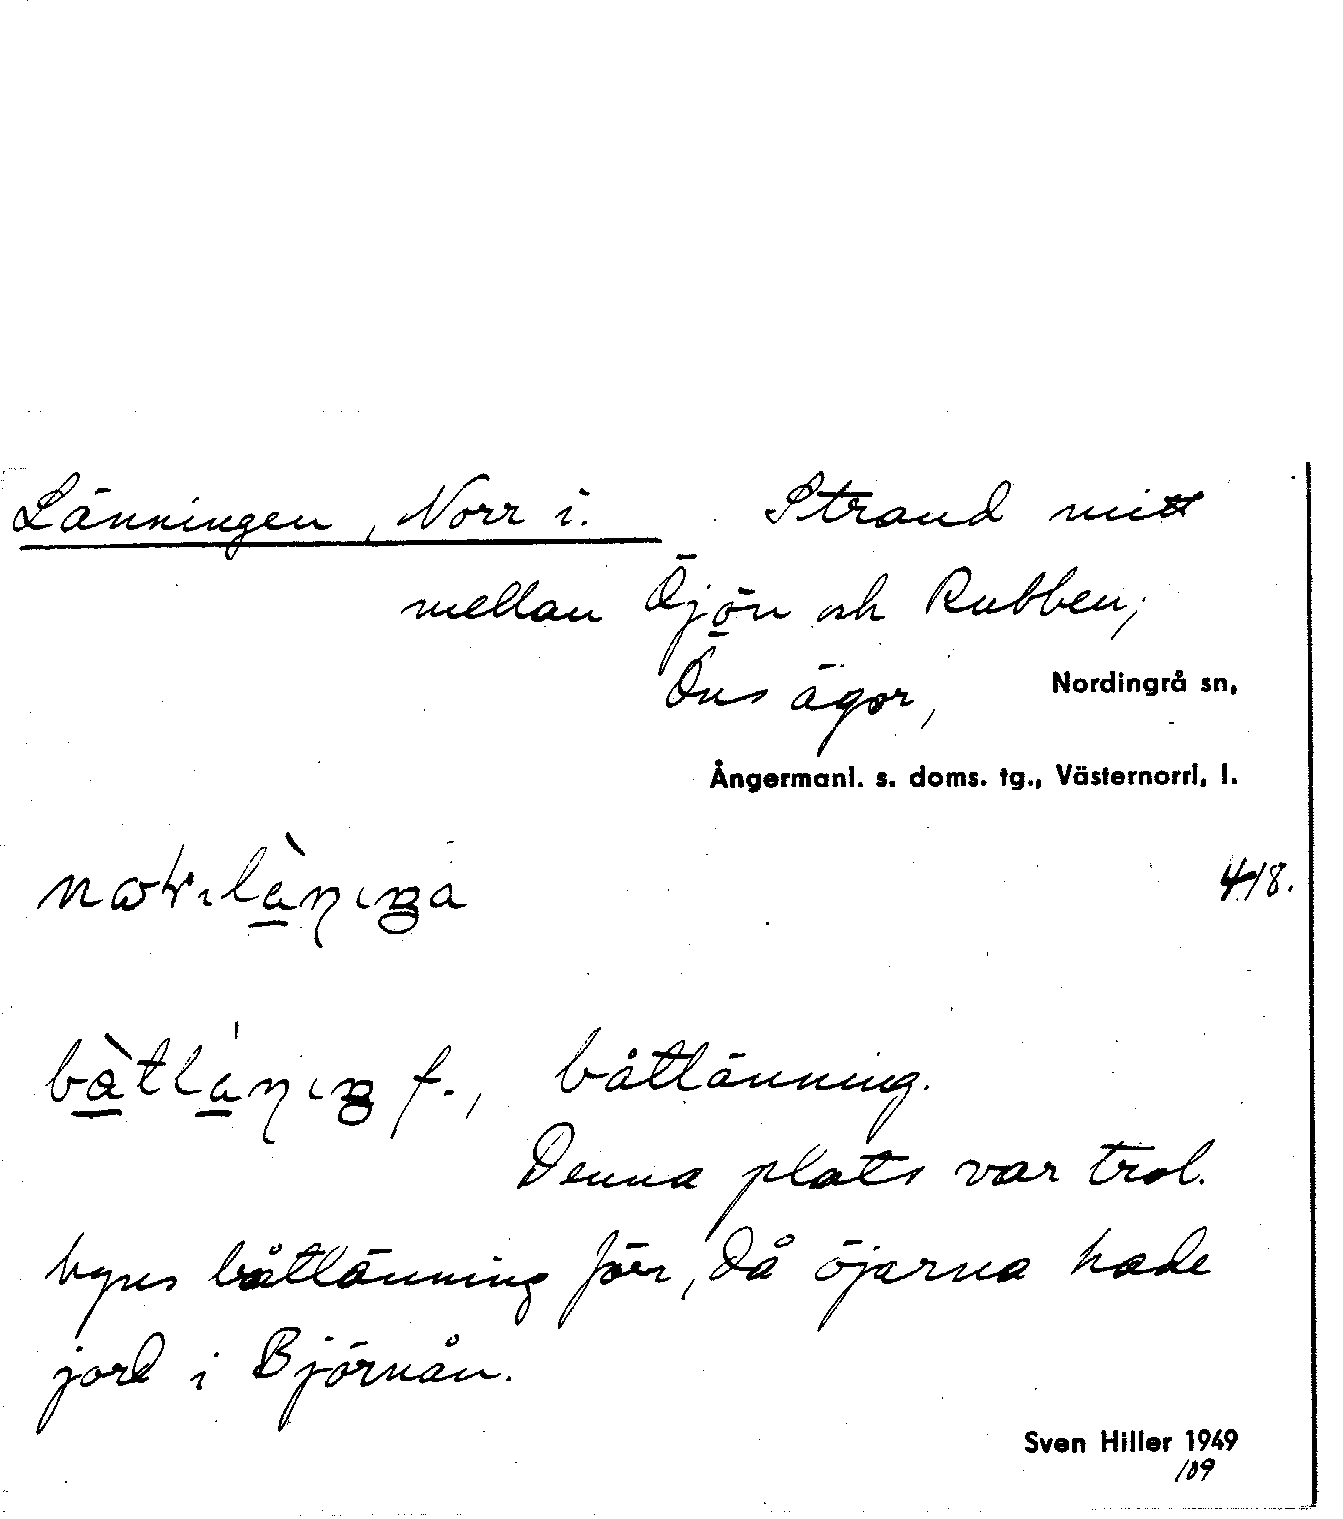 Länningen, Norr i. Strand mitt
mellan Öjön och Rubben,
Öns ägor, Nordingrå sn,
Ångermanl. s. doms. tg., Västernorrl. l.
418.
f., båtlänning.
Denna plats var trol.
byns båtlänning förr, då öjarna hade
jord i Björnån.
Sven Hiller 1949
109